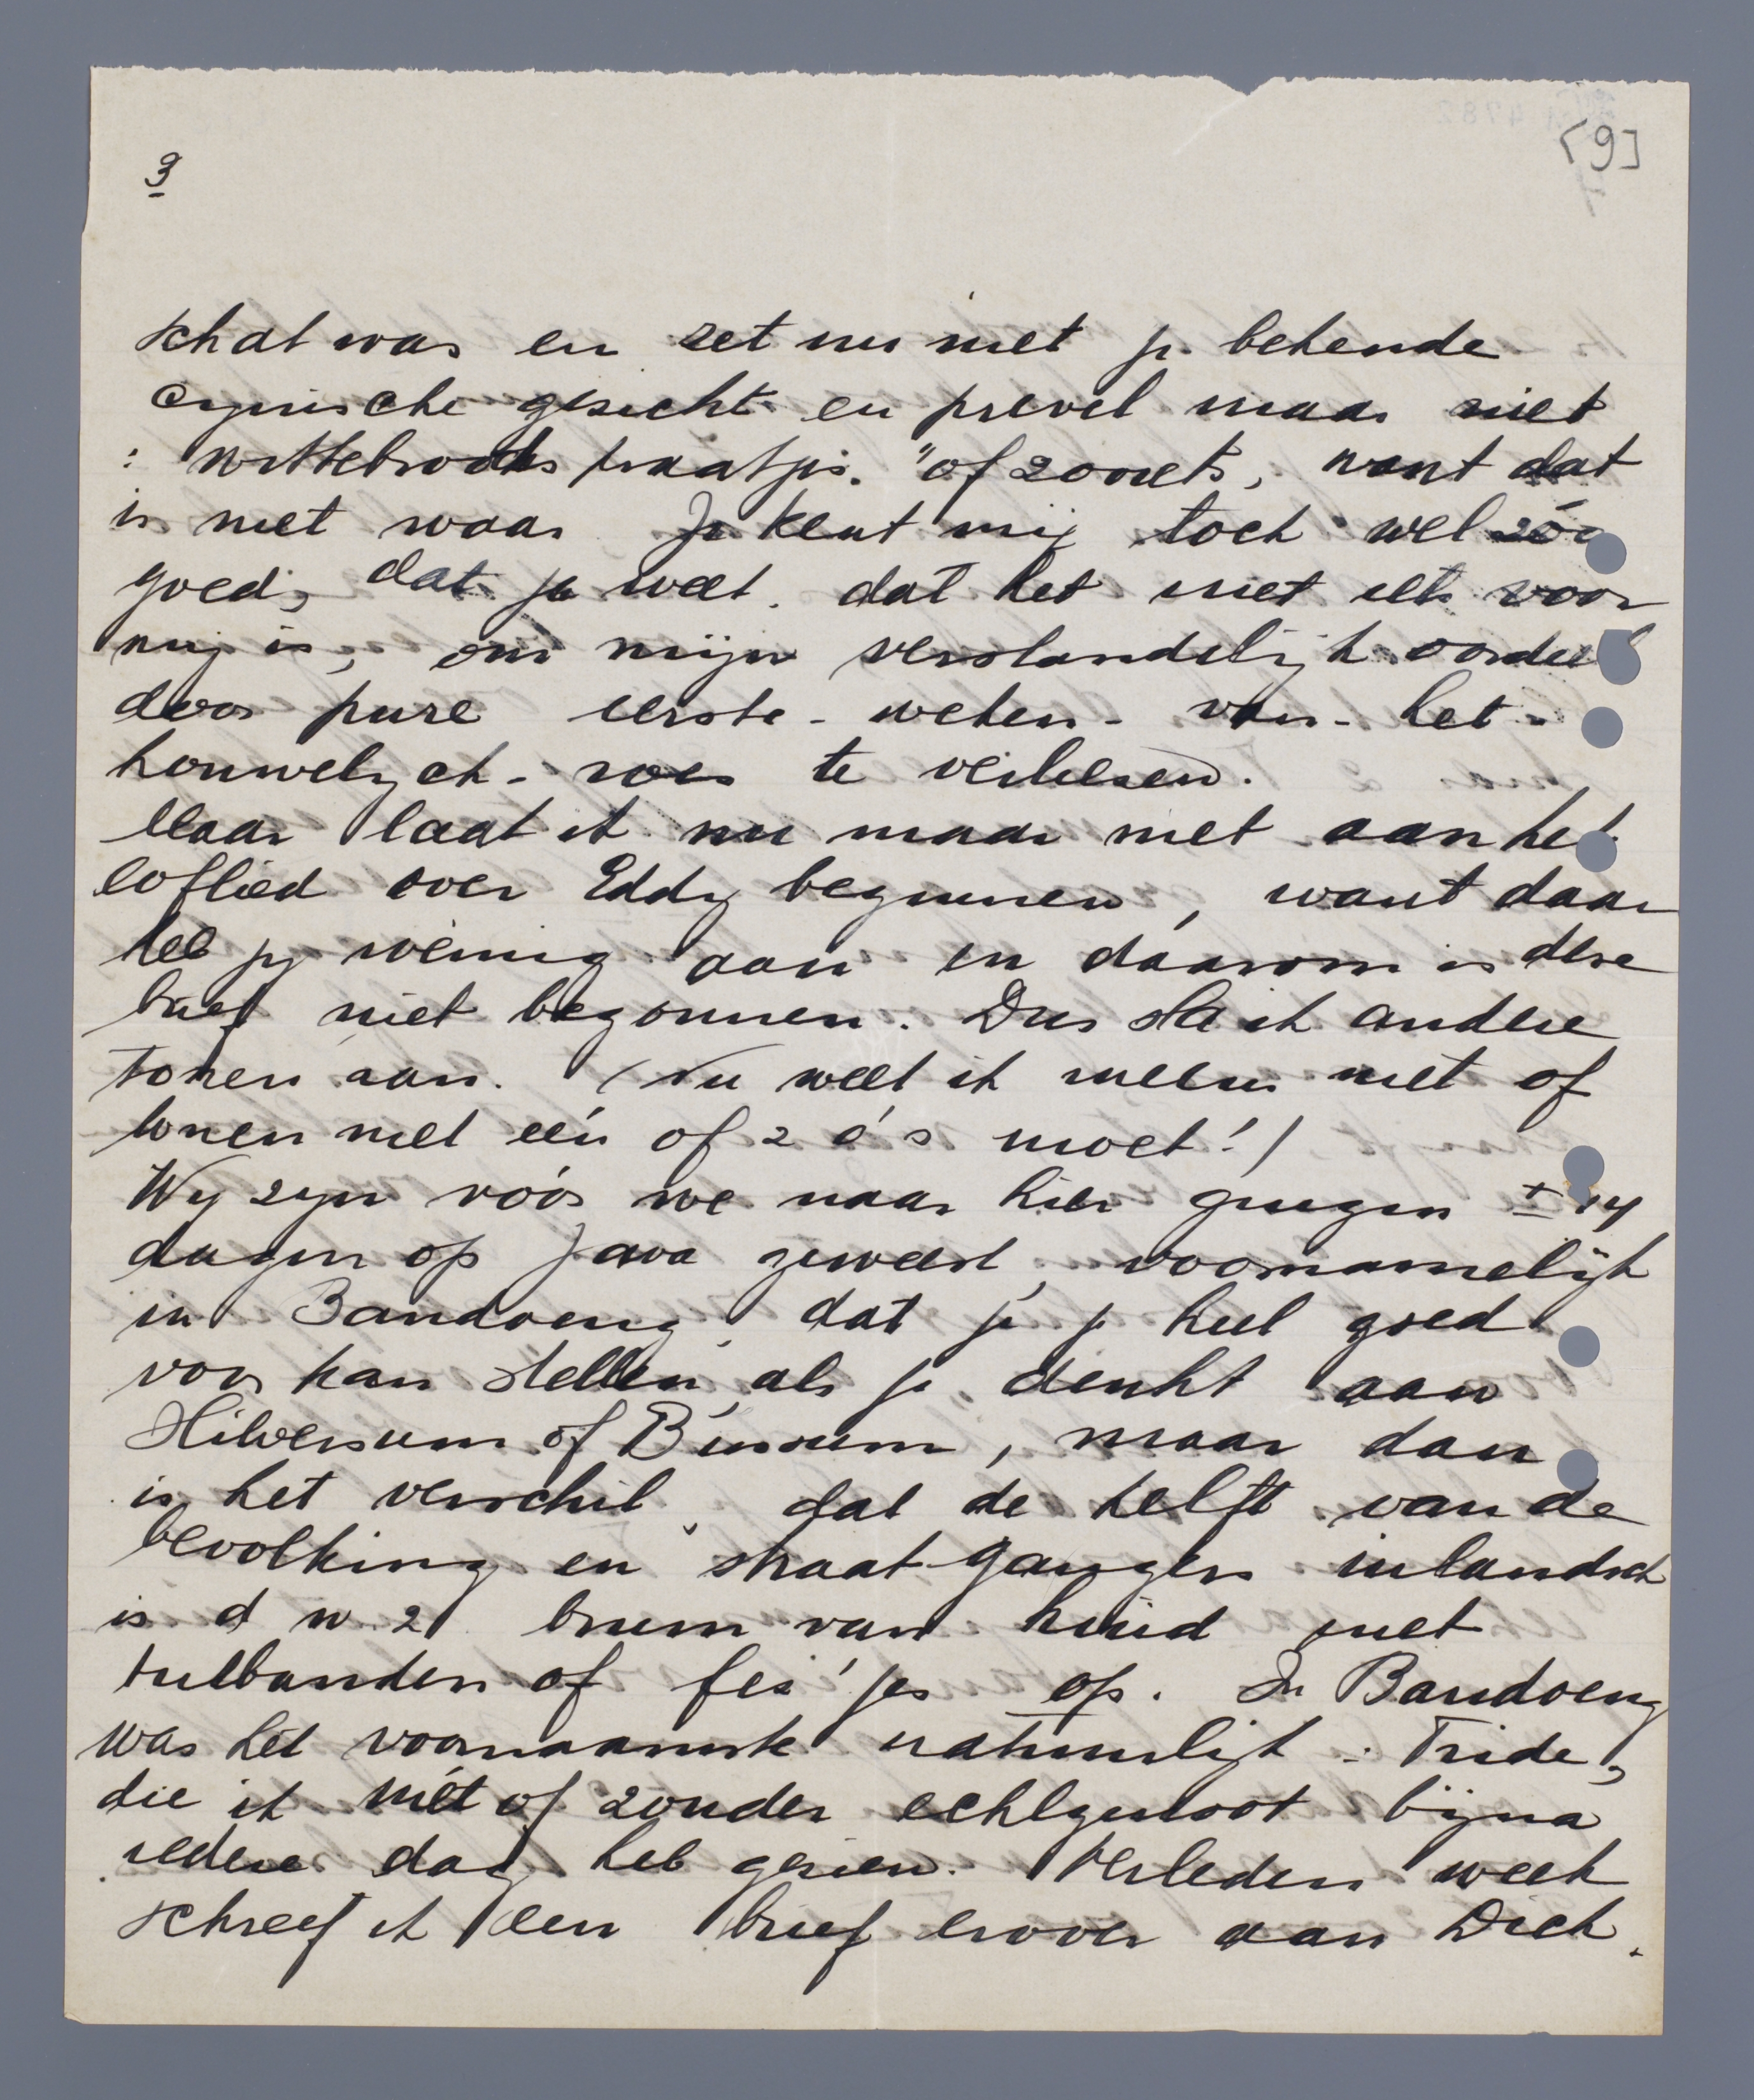 [9]
3
schat was en zet nu niet je bekende
cynische gezicht en prevel maar niet
: wittebroods praatjes." of zooiets, want dat
is niet waar. Je kent mij toch wel zóo
goed, dat je weet, dat het niet iets voor
mij is, om mijn verstandelijk oordeel
door pure eerste-weken-van-het-
houwelijck-roes te verliezen.
Maar laat ik nu maar niet aan het
loflied over Eddy beginnen, want daar
heb jij weinig aan en dáarom is deze
brief niet begonnen. Dus sla ik andere
tonen aan. (Nu weet ik ineens niet of
tonen met één of 2 o's moet!)
Wij zijn vóór we naar hier gingen ± 14
dagen op Java geweest, voornamelijk
in Bandoeng, dat je je heel goed
voor kan stellen, als je denkt aan
Hilversum of Bussum, maar dan
is het verschil, dat de helft van de
bevolking en straat-gangers inlandsch
is d w z bruin van huid met
tulbanden of fez'jes op. In Bandoeng
was het voornaamste natuurlijk: Fride,
die ik mét of zonder echtgenoot bijna
iedere dag heb gezien. Verleden week
schreef ik een brief erover aan Dick.